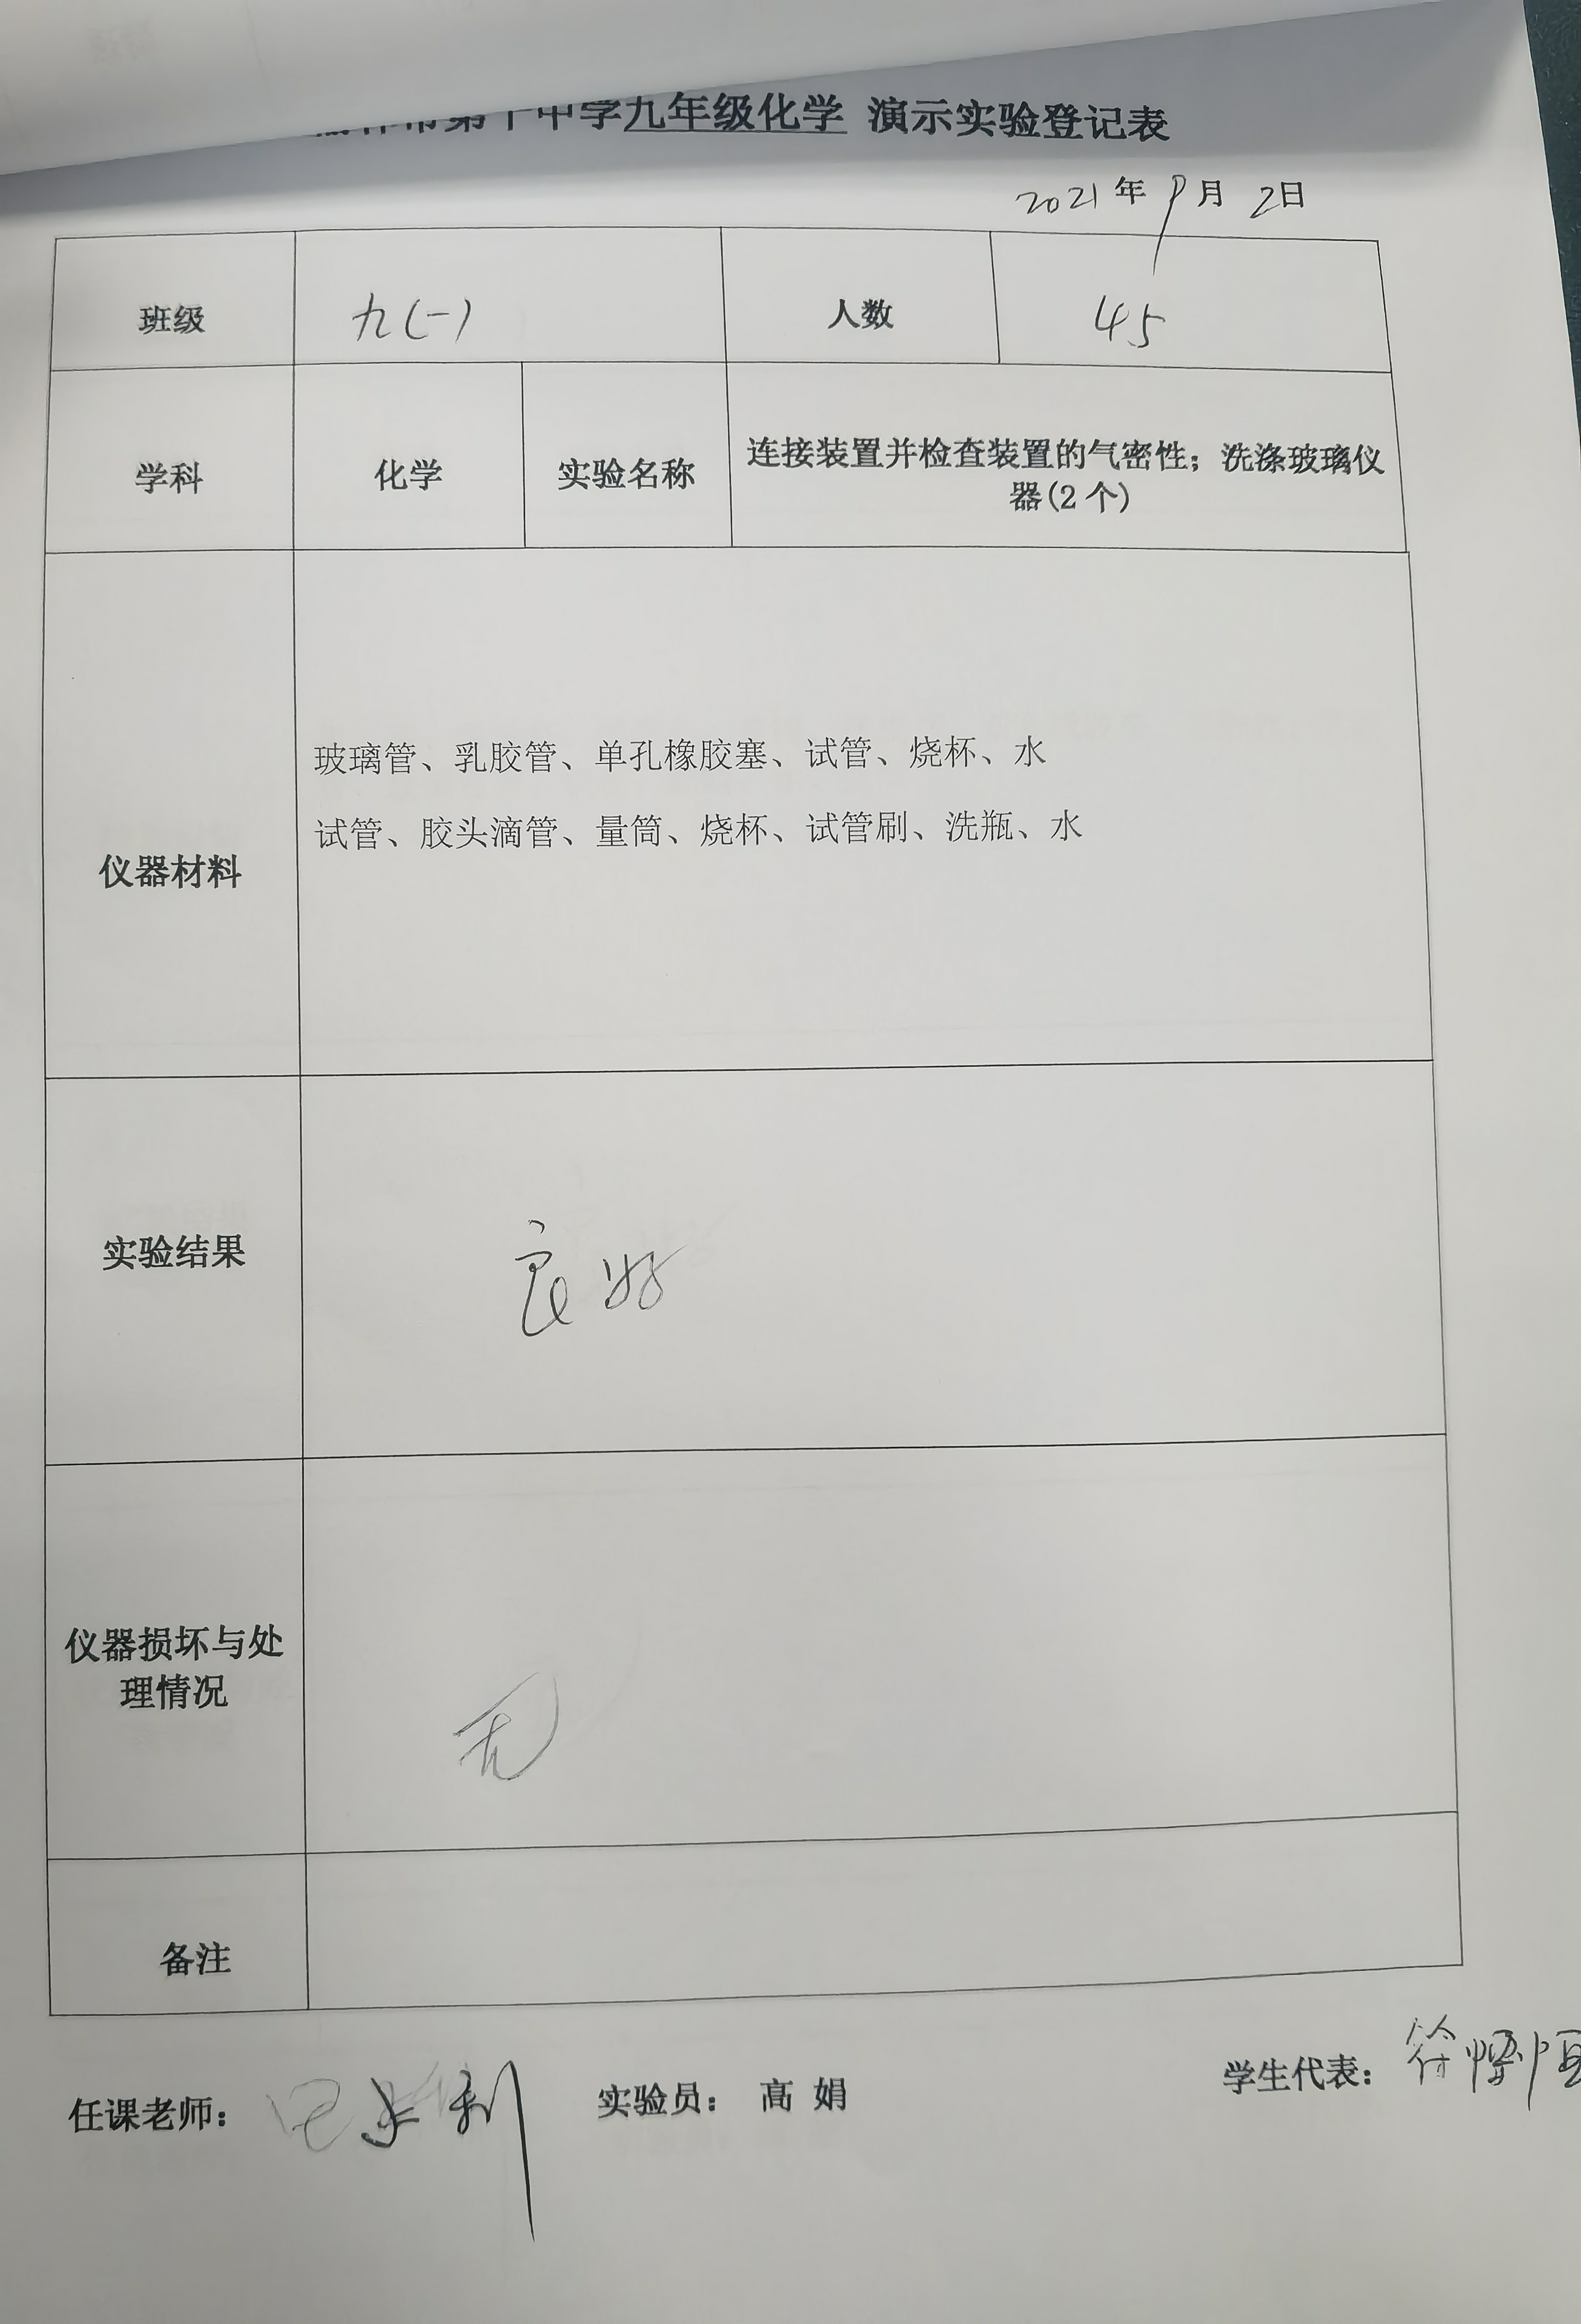 市第十中学九年级化学 演示实验登记表
2021年9月2日
班级 九(一) 人数 45
学科 化学 实验名称 连接装置并检查装置的气密性；洗涤玻璃仪
器(2个)
玻璃管、乳胶管、单孔橡胶塞、试管、烧杯、水
试管、胶头滴管、量筒、烧杯、试管刷、洗瓶、水
仪器材料
实验结果 良好
仪器损坏与处
理情况
无
备注
任课老师： 实验员：高娟 学生代表：